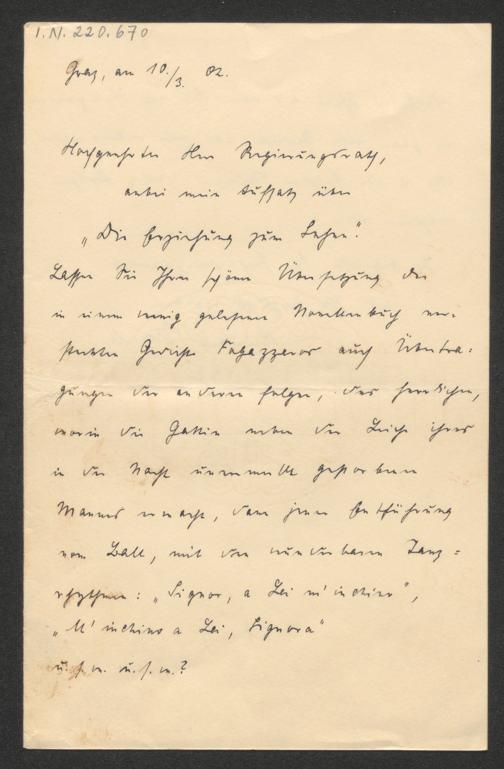 I.N. 220.670
Graz, am 10./3. 02.
Hochgeehrter Herr Regierungsrath,
anbei mein Aufsatz über
„Die Erziehung zum Sehen".
Lassen Sie Ihrer schönen Übersetzung der
in einem wenig gelesenen Novellenbuch ver-
steckten Gedichte Fogazzaros auch Übertra-
gungen der anderen folgen, des herrlichen,
worin die Gattin neben der Leiche ihres
in der Nacht unvermuthet gestorbenen
Mannes erwacht, dann jener Entführung
vom Ball, mit den wunderbaren Tanz-
rhythmen: „Signor, a Lei m'inchino",
„M'inchino a Lei, Signora"
u.s.w. u.s.w.?